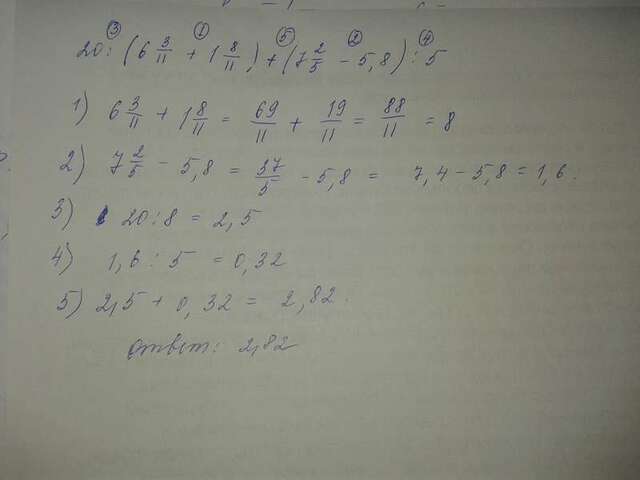 ③ ① ⑤ ② ④
20 : (6 3/11 + 1 8/11) + (7 2/5 - 5,8) : 5
1) 6 3/11 + 1 8/11 = 69/11 + 19/11 = 88/11 = 8
2) 7 2/5 - 5,8 = 37/5 - 5,8 = 7,4 - 5,8 = 1,6.
3) 20 : 8 = 2,5
4) 1,6 : 5 = 0,32
5) 2,5 + 0,32 = 2,82.
Ответ: 2,82